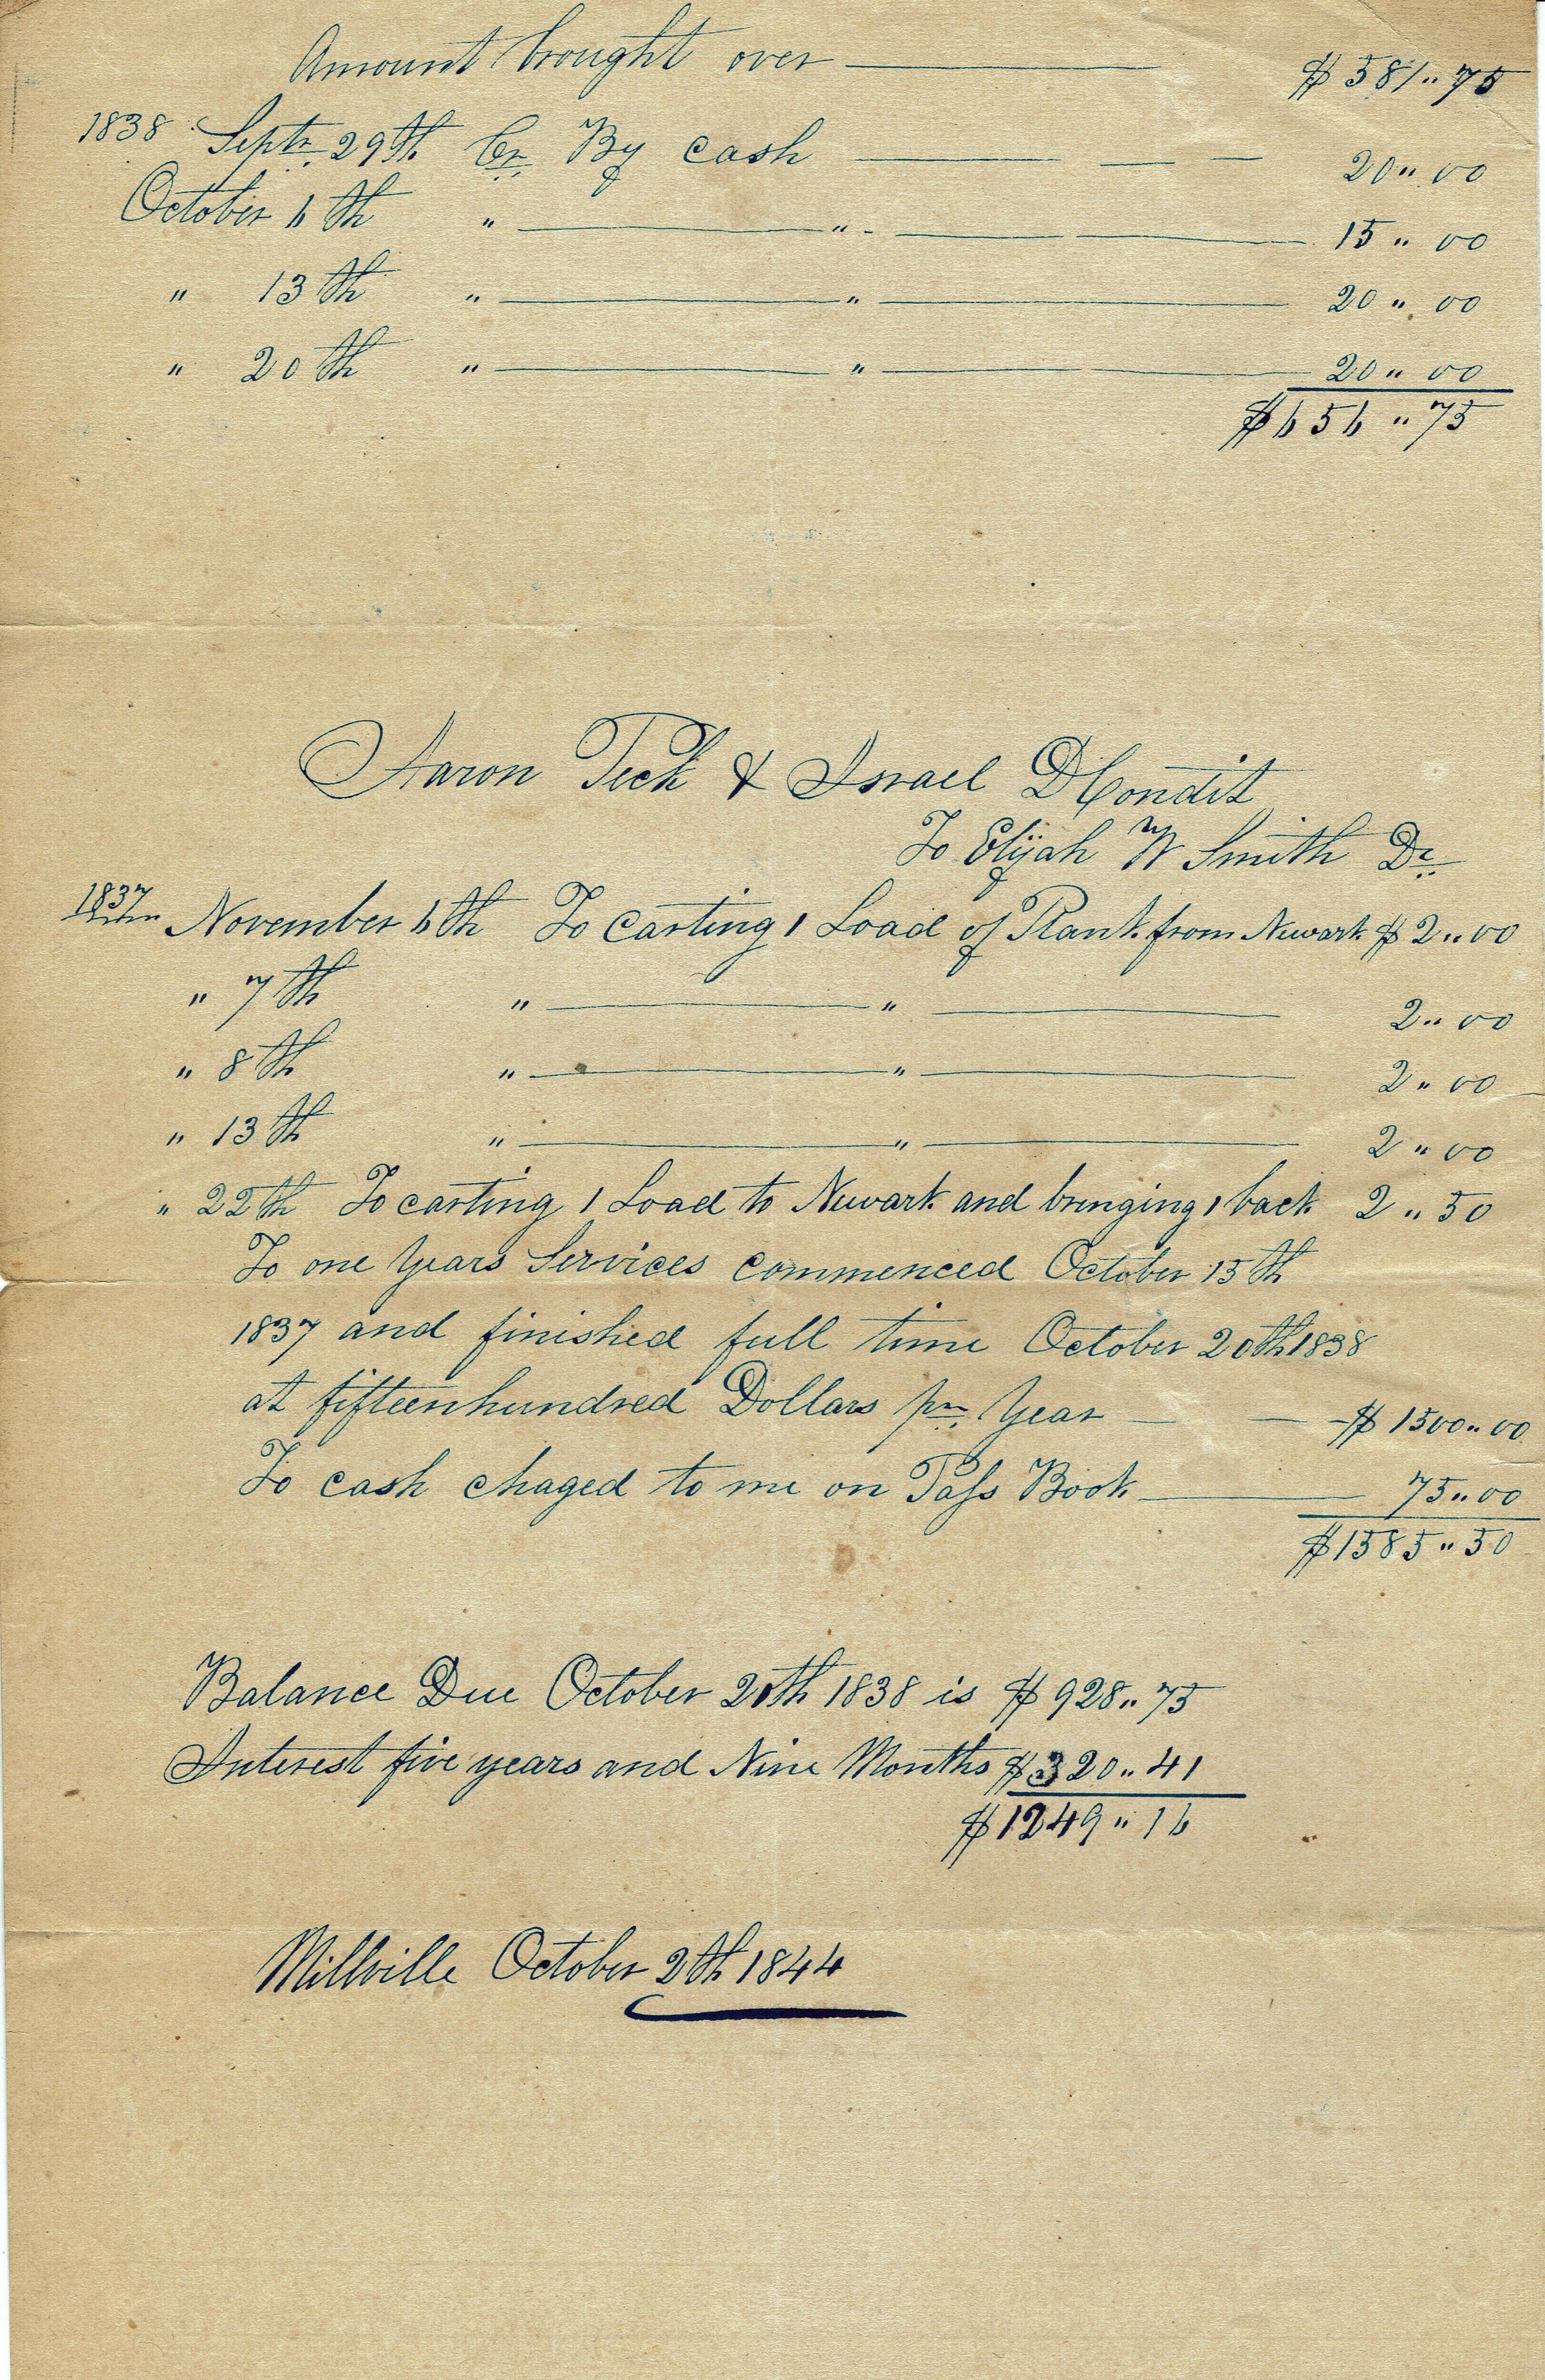 Amount brought over $ 581 " 75
1838 Septr. 29th Cr. By cash 20 " 00
October 6th " " 15 " 00
" 13th " " 20 " 00
" 20th " " 20 " 00
$ 656 " 75
Aaron Peck & Israel D Condit
To Elijah W Smith Dr.
1837 November 6th To Carting 1 Load of Plank from Newark $ 2 " 00
" 7th " " 2 " 00
" 8th " " 2 " 00
" 13th " " 2 " 00
" 22th To carting 1 Load to Newark and bringing 1 back 2 " 50
To one Years Services commenced October 15th
1837 and finished full time October 20th 1838
at fifteenhundred Dollars pr. Year $ 1500 " 00
To cash chaged to me on Pass Book 75 " 00
$ 1585 " 50
Balance Due October 20th 1838 is $ 928 " 75
Interest five years and Nine Months $ 320 " 41
$ 1249 " 16
Millville October 2th 1844